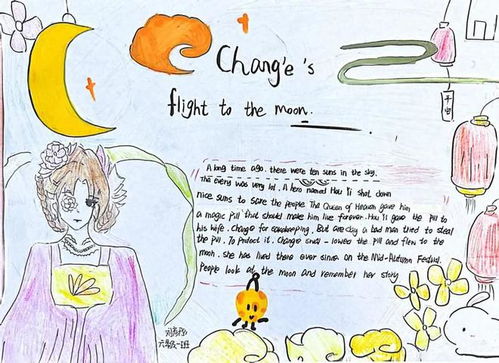 Chang'e's
flight to the moon.
A long time ago. there were ten suns in the sky.
The every was very hot. A hero named Hou Yi shot down
nice suns to save the people The Queen of Heaven gave him
a magic pill that should make him live forever. Hou Yi gave the pill to
his wife. Chang'e for safekeeping. But one day a bad man tried to steal
the pill. To protect it. Chang'e swallowed the pill and flew to the
moon. she has lived there ever since on the Mid-Autumn Festival
People look at the moon and remember her story
六年级一班